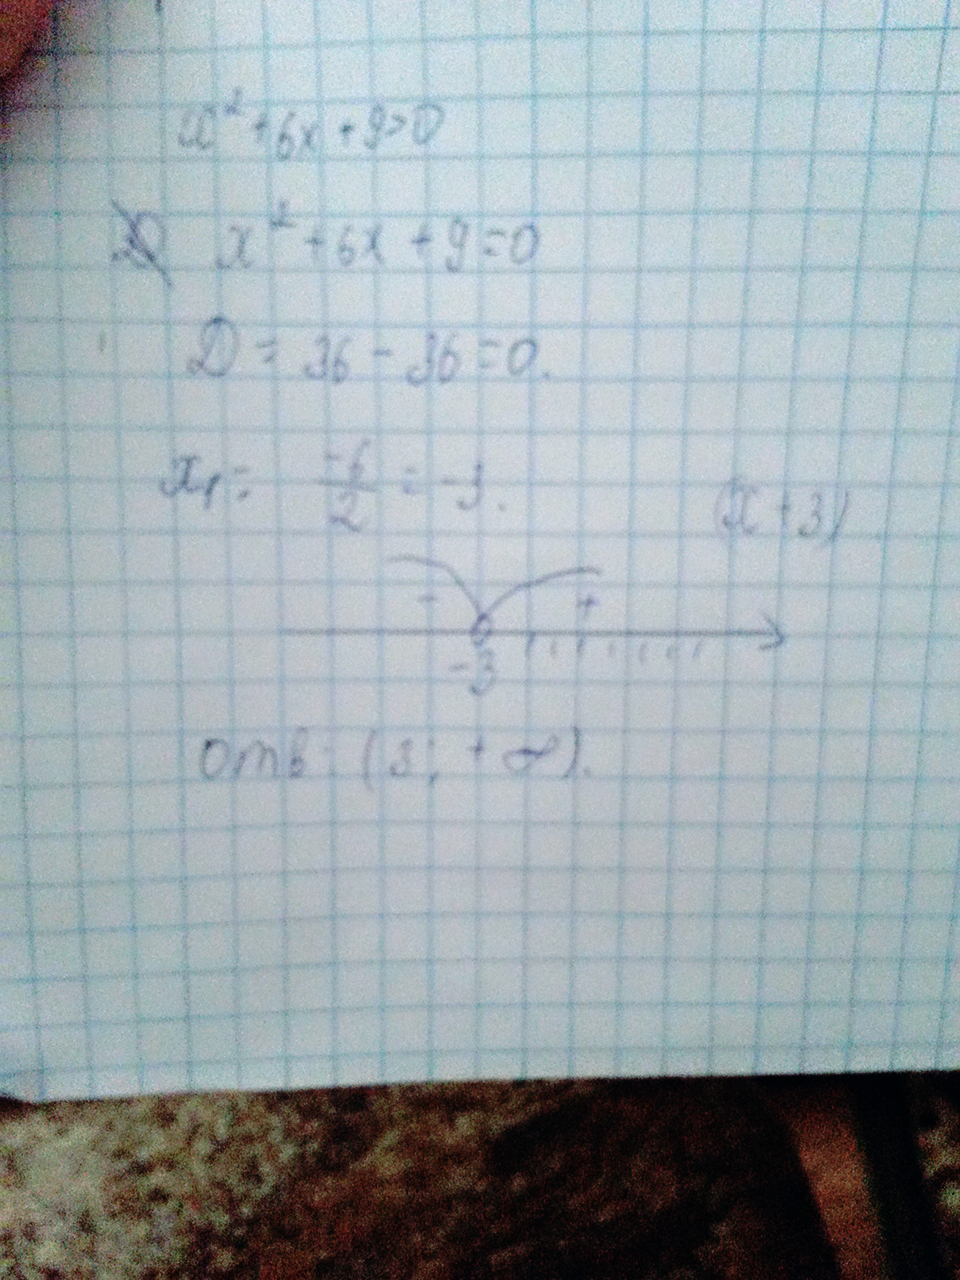 x² + 6x + 9 > 0
x² + 6x + 9 = 0
D = 36 - 36 = 0.
x₁ = -6/2 = -3.
(x + 3)
- +
-3
отв: (3; + ∞).